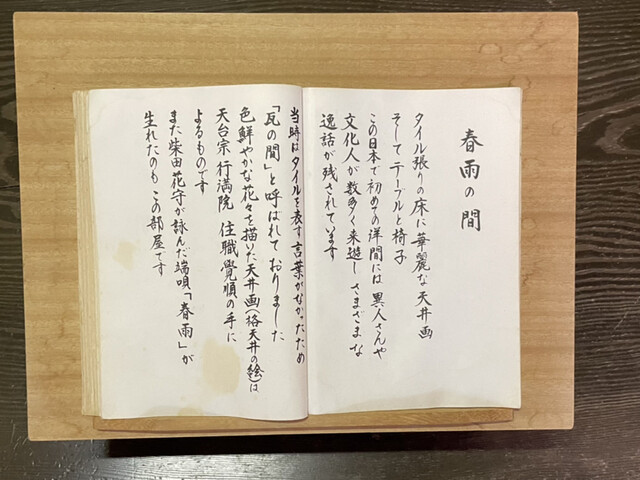 春雨の間
タイル張りの床に華麗な天井画
そしてテーブルと椅子
この日本で初めての洋間には異人さんや
文化人が数多く来遊し さまざまな
逸話が残されています
当時はタイルを表す言葉がなかったため
「瓦の間」と呼ばれておりました
色鮮やかな花々を描いた天井画(格天井の絵)は
天台宗 行満院 住職覺順の手に
よるものです
また柴田花守が詠んだ端唄「春雨」が
生れたのも この部屋です